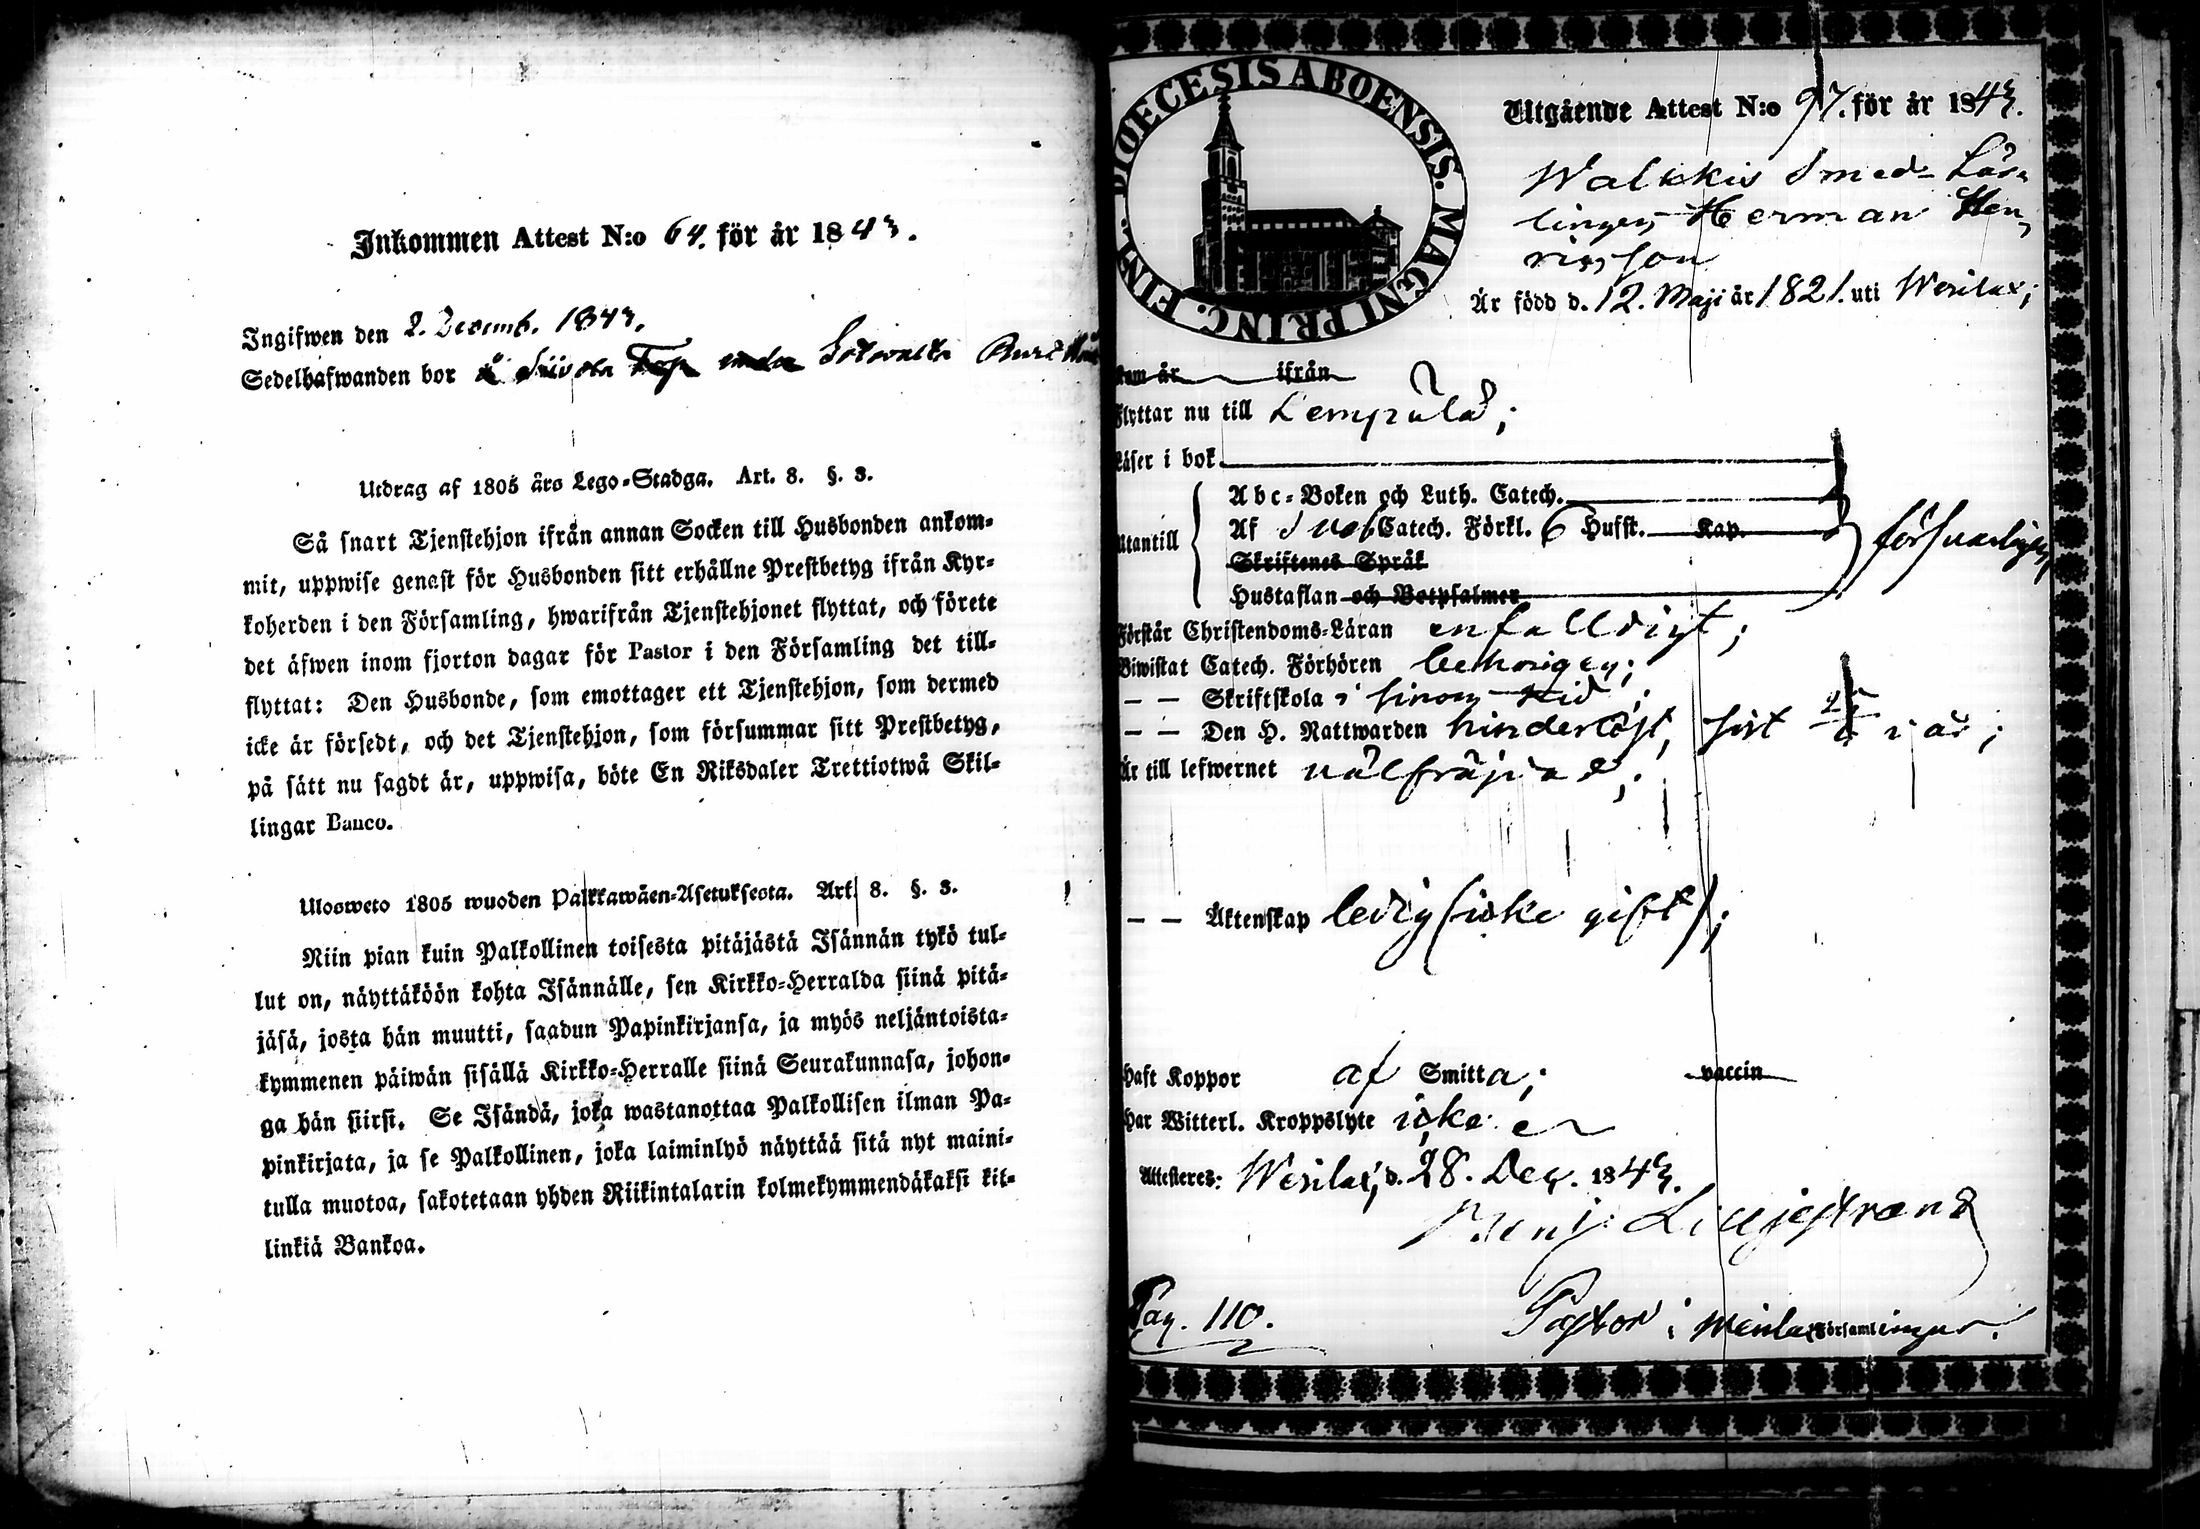 Inkommen Attest N:o 64. för år 1843.
Ingifwen den 2. Decemb. 1843.
Sedelhafwanden bor å
Utdrag af 1805 års Lego-Stadga. Art. 8. §. 3.
Så snart Tjenstehjon ifrån annan Socken till Husbonden ankom-
mit, uppwise genast för Husbonden sitt erhållne Prestbetyg ifrån Kyr-
koherden i den Församling, hwarifrån Tjenstehjonet flyttat, och förete
det äfwen inom fjorton dagar för Pastor i den Församling det till-
flyttat: Den Husbonde, som emottager ett Tjenstehjon, som dermed
icke är försedt, och det Tjenstehjon, som försummar sitt Prestbetyg,
på sätt nu sagdt är, uppwisa, böte En Riksdaler Trettiotwå Skil-
lingar Banco.
Ulosweto 1805 wuoden Palkkawäen-Asetuksesta. Art. 8. §. 3.
Niin pian kuin Palkollinen toisesta pitäjästä Isännän tykö tul-
lut on, näyttäköön kohta Isännälle, sen Kirkko-Herralda siinä pitä-
jäsä, josta hän muutti, saadun Papinkirjansa, ja myös neljäntoista-
kymmenen päiwän sisällä Kirkko-Herralle siinä Seurakunnasa, johon-
ga hän siirsi. Se Isändä, joka wastanottaa Palkollisen ilman Pa-
pinkirjata, ja se Palkollinen, joka laiminlyö näyttää sitä nyt maini-
tulla muotoa, sakotetaan yhden Riikintalarin kolmekymmendäkaksi kil-
linkiä Bankoa.
DIOECESIS ABOENSIS. MAGNI PRINC. FINL.
Utgående Attest N:o 97. för år 1843.
Walkkis Smed-Lär-
lingen Herman Hen-
ricsson
Är född d. 12. Maji år 1821. uti Wesilax;
Kom år ifrån
Flyttar nu till Lempälä;
Läser i bok
Abc-Boken och Luth. Catech.
Utantill Af Sveb Catech. Förkl. 6 Hufst. Kap. försvarligen
Skriftenes Språk
Hustaflan och Botpsalmer
Förstår Christendoms-Läran enfalldigt;
Biwistat Catech. Förhören behörigen;
— — Skriftskola i sinom tid;
— — Den H. Nattwarden hinderlöst, sist i år;
Är till lefwernet välfräjdad;
— — Äktenskap ledig (icke gift);
Haft Koppor af Smitta; vaccin
Har Witterl. Kroppslyte icke
Attesteres: Wesilax, d. 28. Dec. 1843.
Benj. Liljestrand
Pag. 110. Pastor i Wesilax Församlingar.